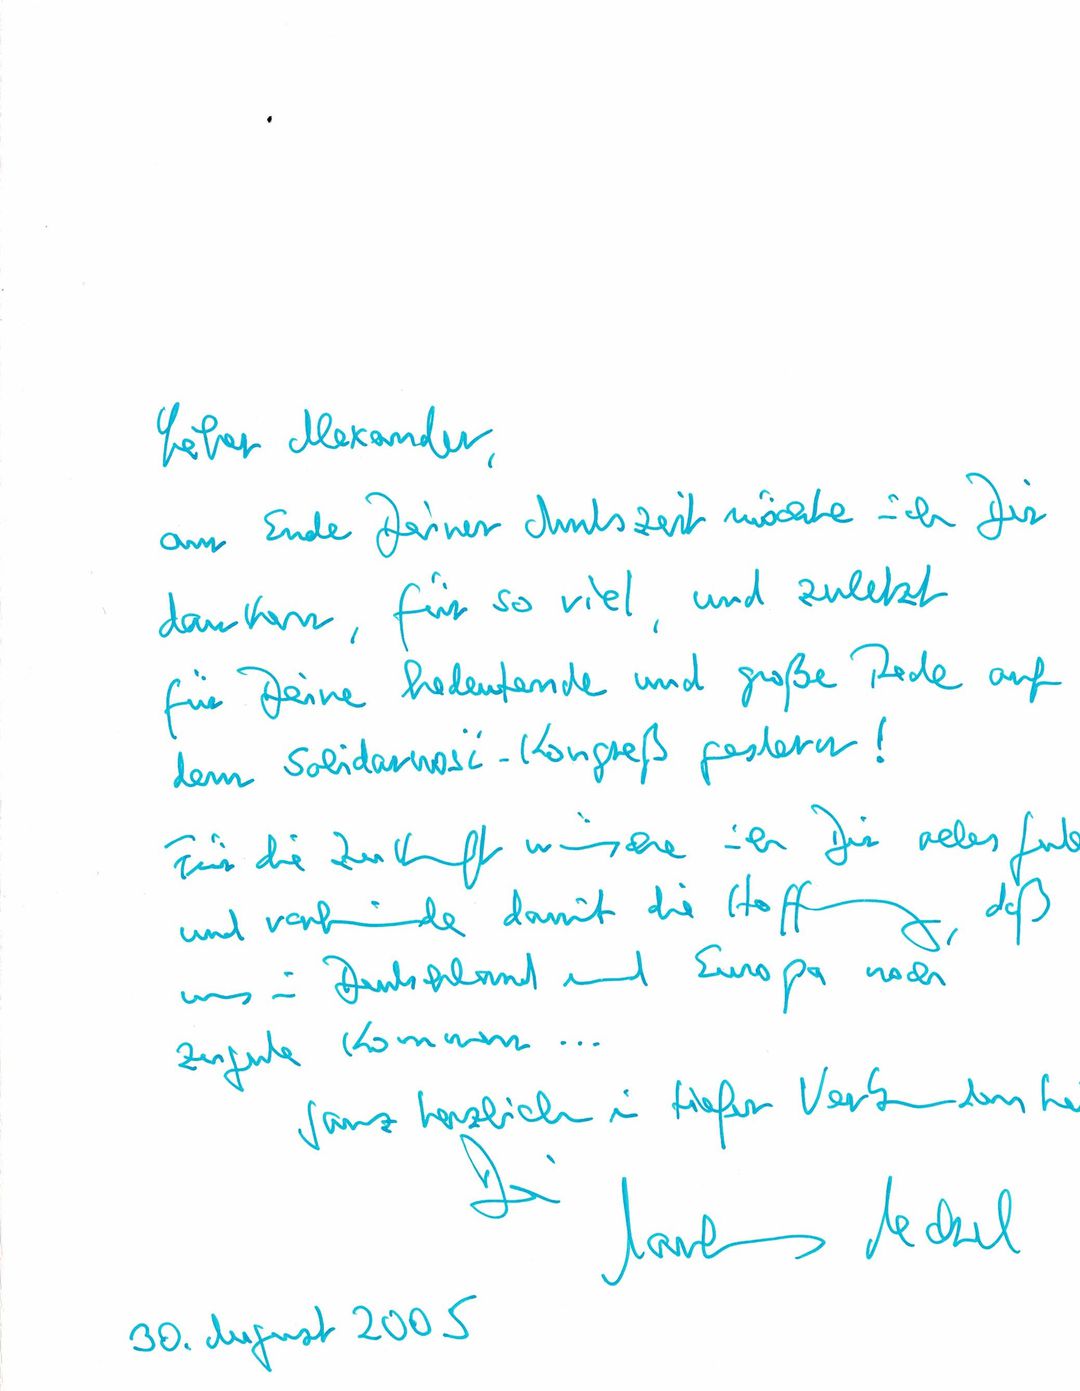 Lieber Alexander,
am Ende Deiner Amtszeit möchte ich Dir
danken, für so viel, und zuletzt
für Deine bedeutende und große Rede auf
dem Solidarność-Kongreß gestern!
Für die Zukunft wünsche ich Dir alles Gute
und verbinde damit die Hoffnung, daß
uns in Deutschland und Europa noch
zugute kommen ...
Ganz herzlich in tiefer Verbundenhei
Dein
Markus Meckel
30. August 2005